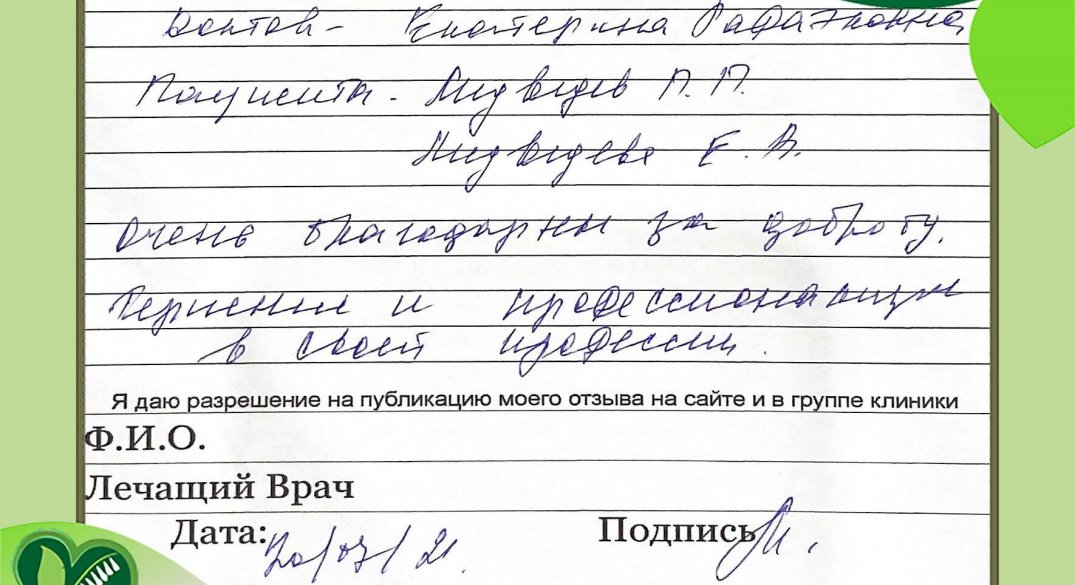 Доктор - Екатерина Рафаэловна
Пациенты - Медведев П. П.
Медведева Е. В.
Очень благодарны за доброту.
Терпение и профессионализм
в своей профессии.
Я даю разрешение на публикацию моего отзыва на сайте и в группе клиники
Ф.И.О.
Лечащий Врач
Дата: 20/03/21. Подпись